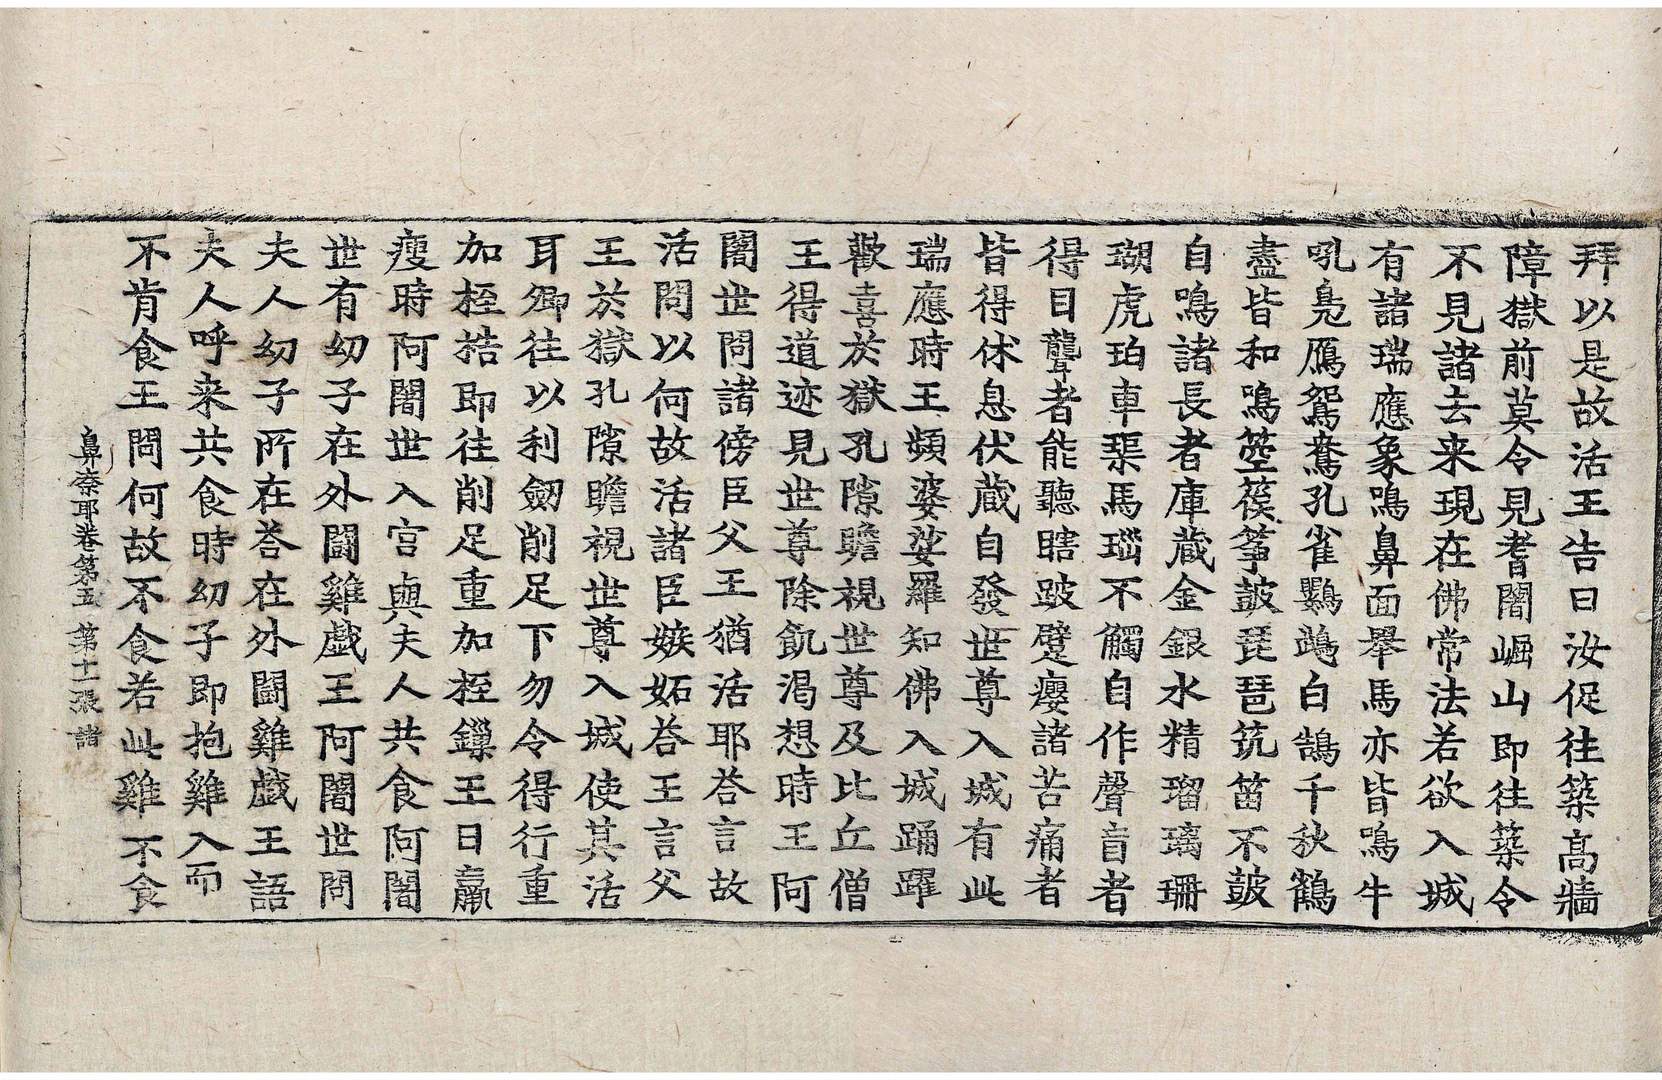 拜以是故活王告曰汝促往築高牆
障獄前莫令見耆闍崛山即往築令
不見諸去来現在佛常法若欲入城
有諸瑞應象鳴鼻面舉馬亦皆鳴牛
吼鳧鴈鴛鴦孔雀鸚鵡白鵠千秋鶴
盡皆和鳴箜篌箏皷琵琶筑笛不皷
自鳴諸長者庫蔵金銀水精瑠璃珊
瑚虎珀車璖馬瑙不觸自作聲盲者
得目聾者能聽瞎跛躄癭諸苦痛者
皆得休息伏蔵自發世尊入城有此
瑞應時王頻婆娑羅知佛入城踊躍
歡喜於獄孔隙瞻視世尊及比丘僧
王得道迹見世尊除飢渴想時王阿
闍世問諸傍臣父王猶活耶荅言故
活問以何故活諸臣嫉妬荅王言父
王於獄孔隙瞻視世尊入城使其活
耳卿往以利劒削足下勿令得行重
加桎梏即往削足重加桎鏁王日羸
瘦時阿闍世入宮與夫人共食阿闍
世有幼子在外鬪雞戯王阿闍世問
夫人幼子所在荅在外鬪雞戯王語
夫人呼来共食時幼子即抱雞入而
不肯食王問何故不食若此雞不食
鼻奈耶卷第五 第十一張 諸